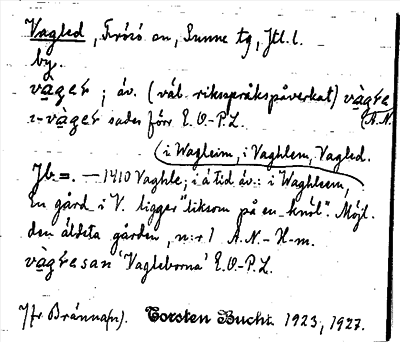 Vagled, Frösö sn, Sunne tg, Jtl. l.
by.
vàger; äv. (väl. riksspråkspåverkat) vàgre
i-vàger sades förr E.O.-P.L. (A.N.
(i Wagleim, i Vaghlem, Vagled.
Jb =. — 1410 Vaghle; i ä tid äv.: i Waghleem,
En gård i V. ligger "liksom på en knöl". Möjl.
den äldsta gården, n:r 1 A.N.-H-m.
vàgresan 'Vagleborna' E.O.-P.L.
Jfr Bränna(n). Torsten Bucht. 1923, 1927.